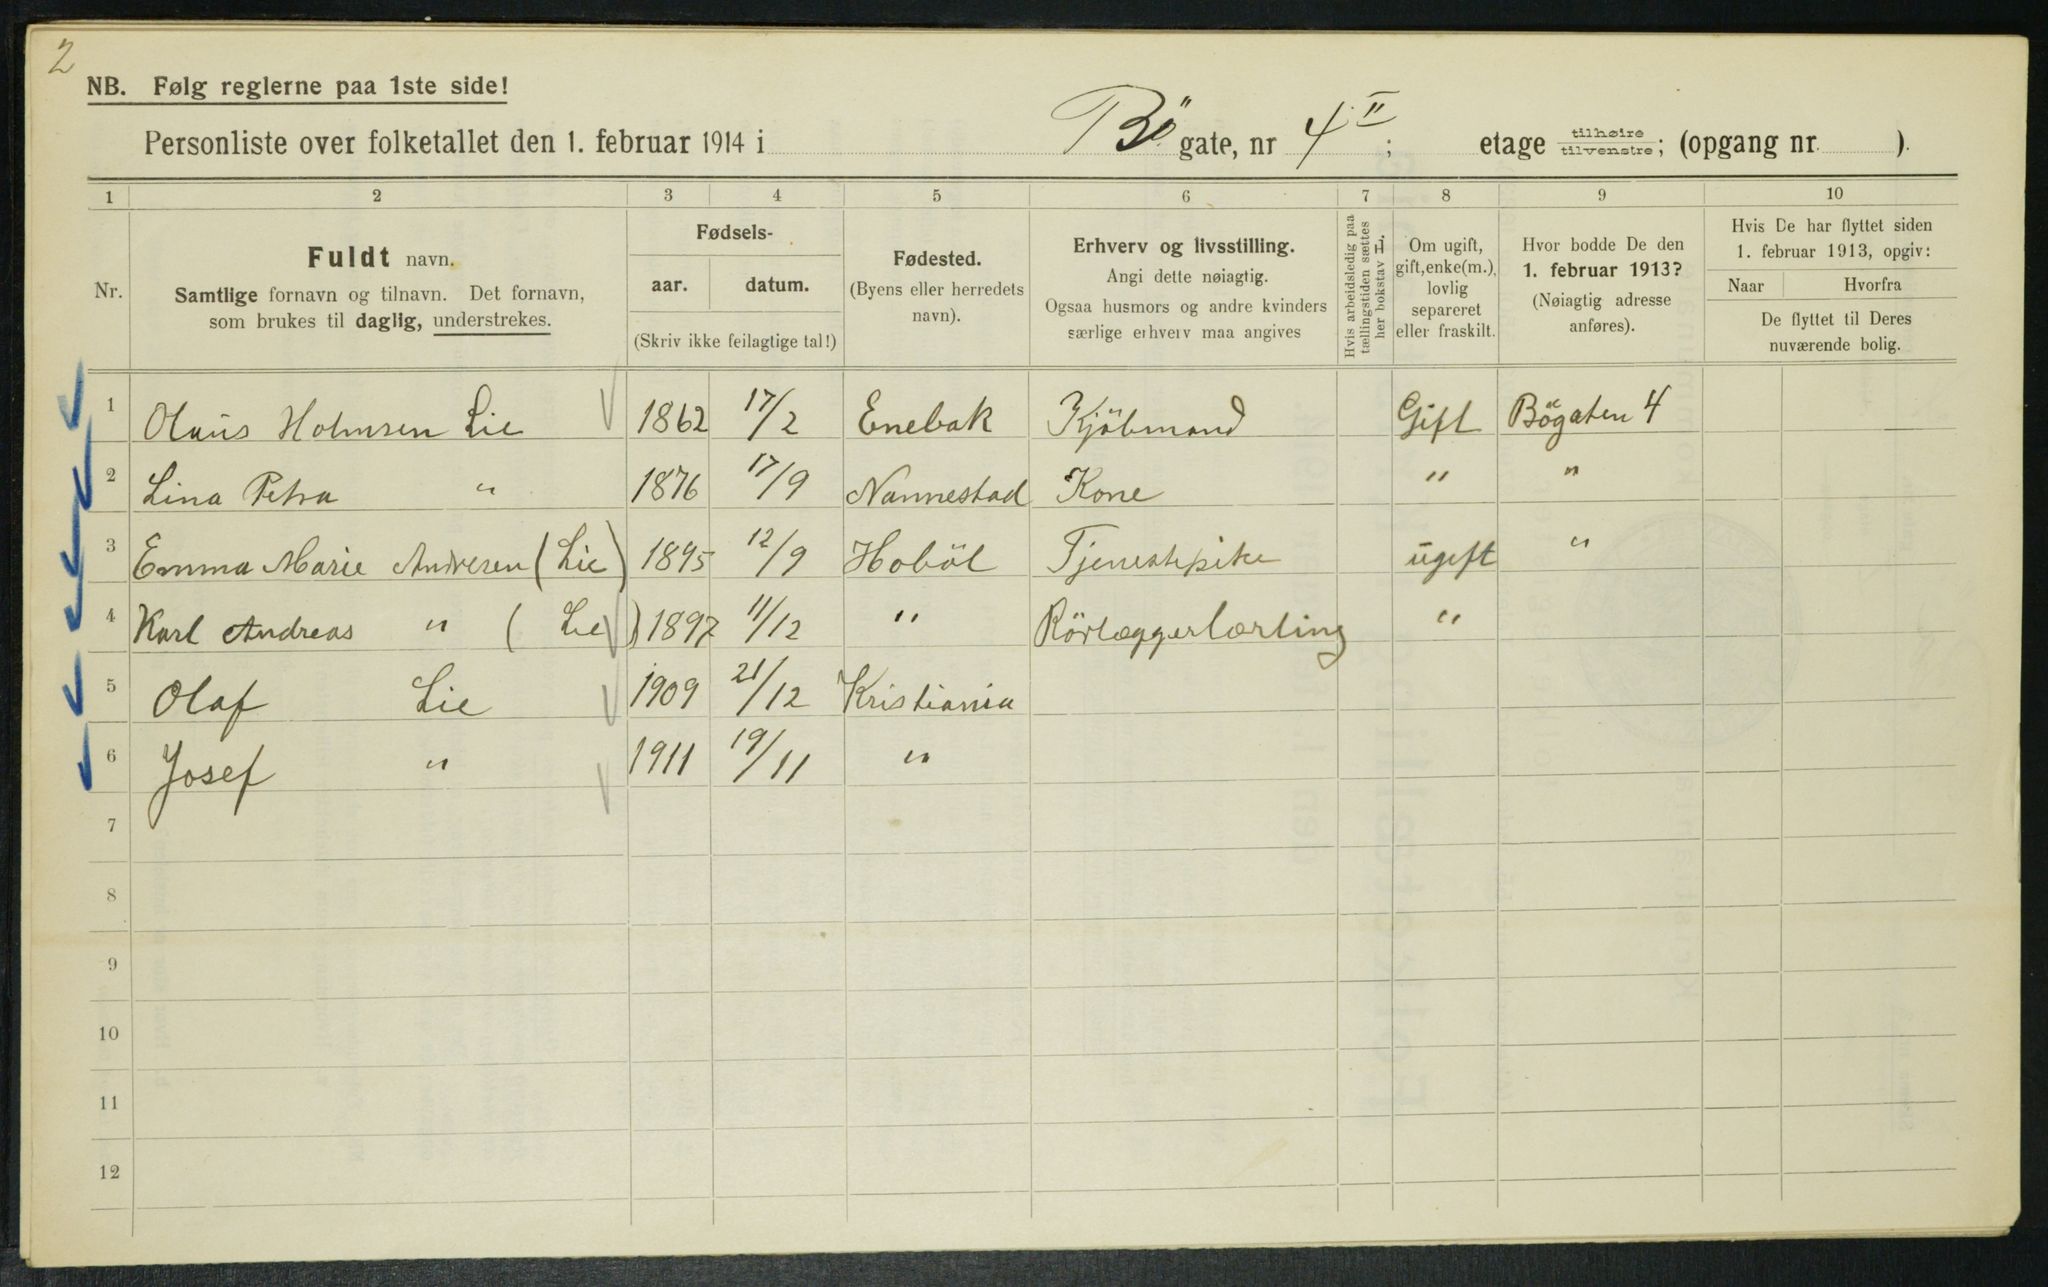 2
NB. Følg reglerne paa 1ste side!
Personliste over folketallet den 1. februar 1914 i Bö gate, nr 4 II; etage tilhøire/tilvenstre; (opgang nr ).
1 2 3 4 5 6 7 8 9 10
Nr.
Fuldt navn.
Samtlige fornavn og tilnavn. Det fornavn,
som brukes til daglig, understrekes.
Fødsels-
aar. datum.
(Skriv ikke feilagtige tal!)
Fødested.
(Byens eller herredets
navn).
Erhverv og livsstilling.
Angi dette nøiagtig.
Ogsaa husmors og andre kvinders
særlige erhverv maa angives
Hvis arbeidsledig paa
tællingstiden sættes
her bokstav H.
Om ugift,
gift, enke(m.),
lovlig
separeret
eller fraskilt.
Hvor bodde De den
1. februar 1913?
(Nøiagtig adresse
anføres).
Hvis De har flyttet siden
1. februar 1913, opgiv:
Naar Hvorfra
De flyttet til Deres
nuværende bolig.
1 Olaus Holmsen Lie 1862 17/2 Enebak Kjöbmand Gift Bögaten 4
2 Lina Petra " 1876 17/9 Nannestad Kone " "
3 Emma Marie Andresen (Lie) 1895 12/9 Hoböl Tjenestepike ugift "
4 Karl Andreas " ( Lie ) 1897 11/12 " Rörlæggerlærling "
5 Olaf Lie 1909 21/12 Kristiania
6 Josef " 1911 19/11 "
7
8
9
10
11
12